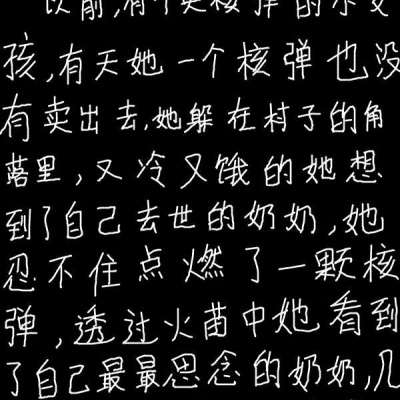 以前,有个卖核弹的小女
孩,有天她一个核弹也没
有卖出去,她躲在村子的角
落里,又冷又饿的她想
到了自己去世的奶奶,她
忍不住点燃了一颗核
弹,透过火苗中她看到
了自己最最思念的奶奶,几